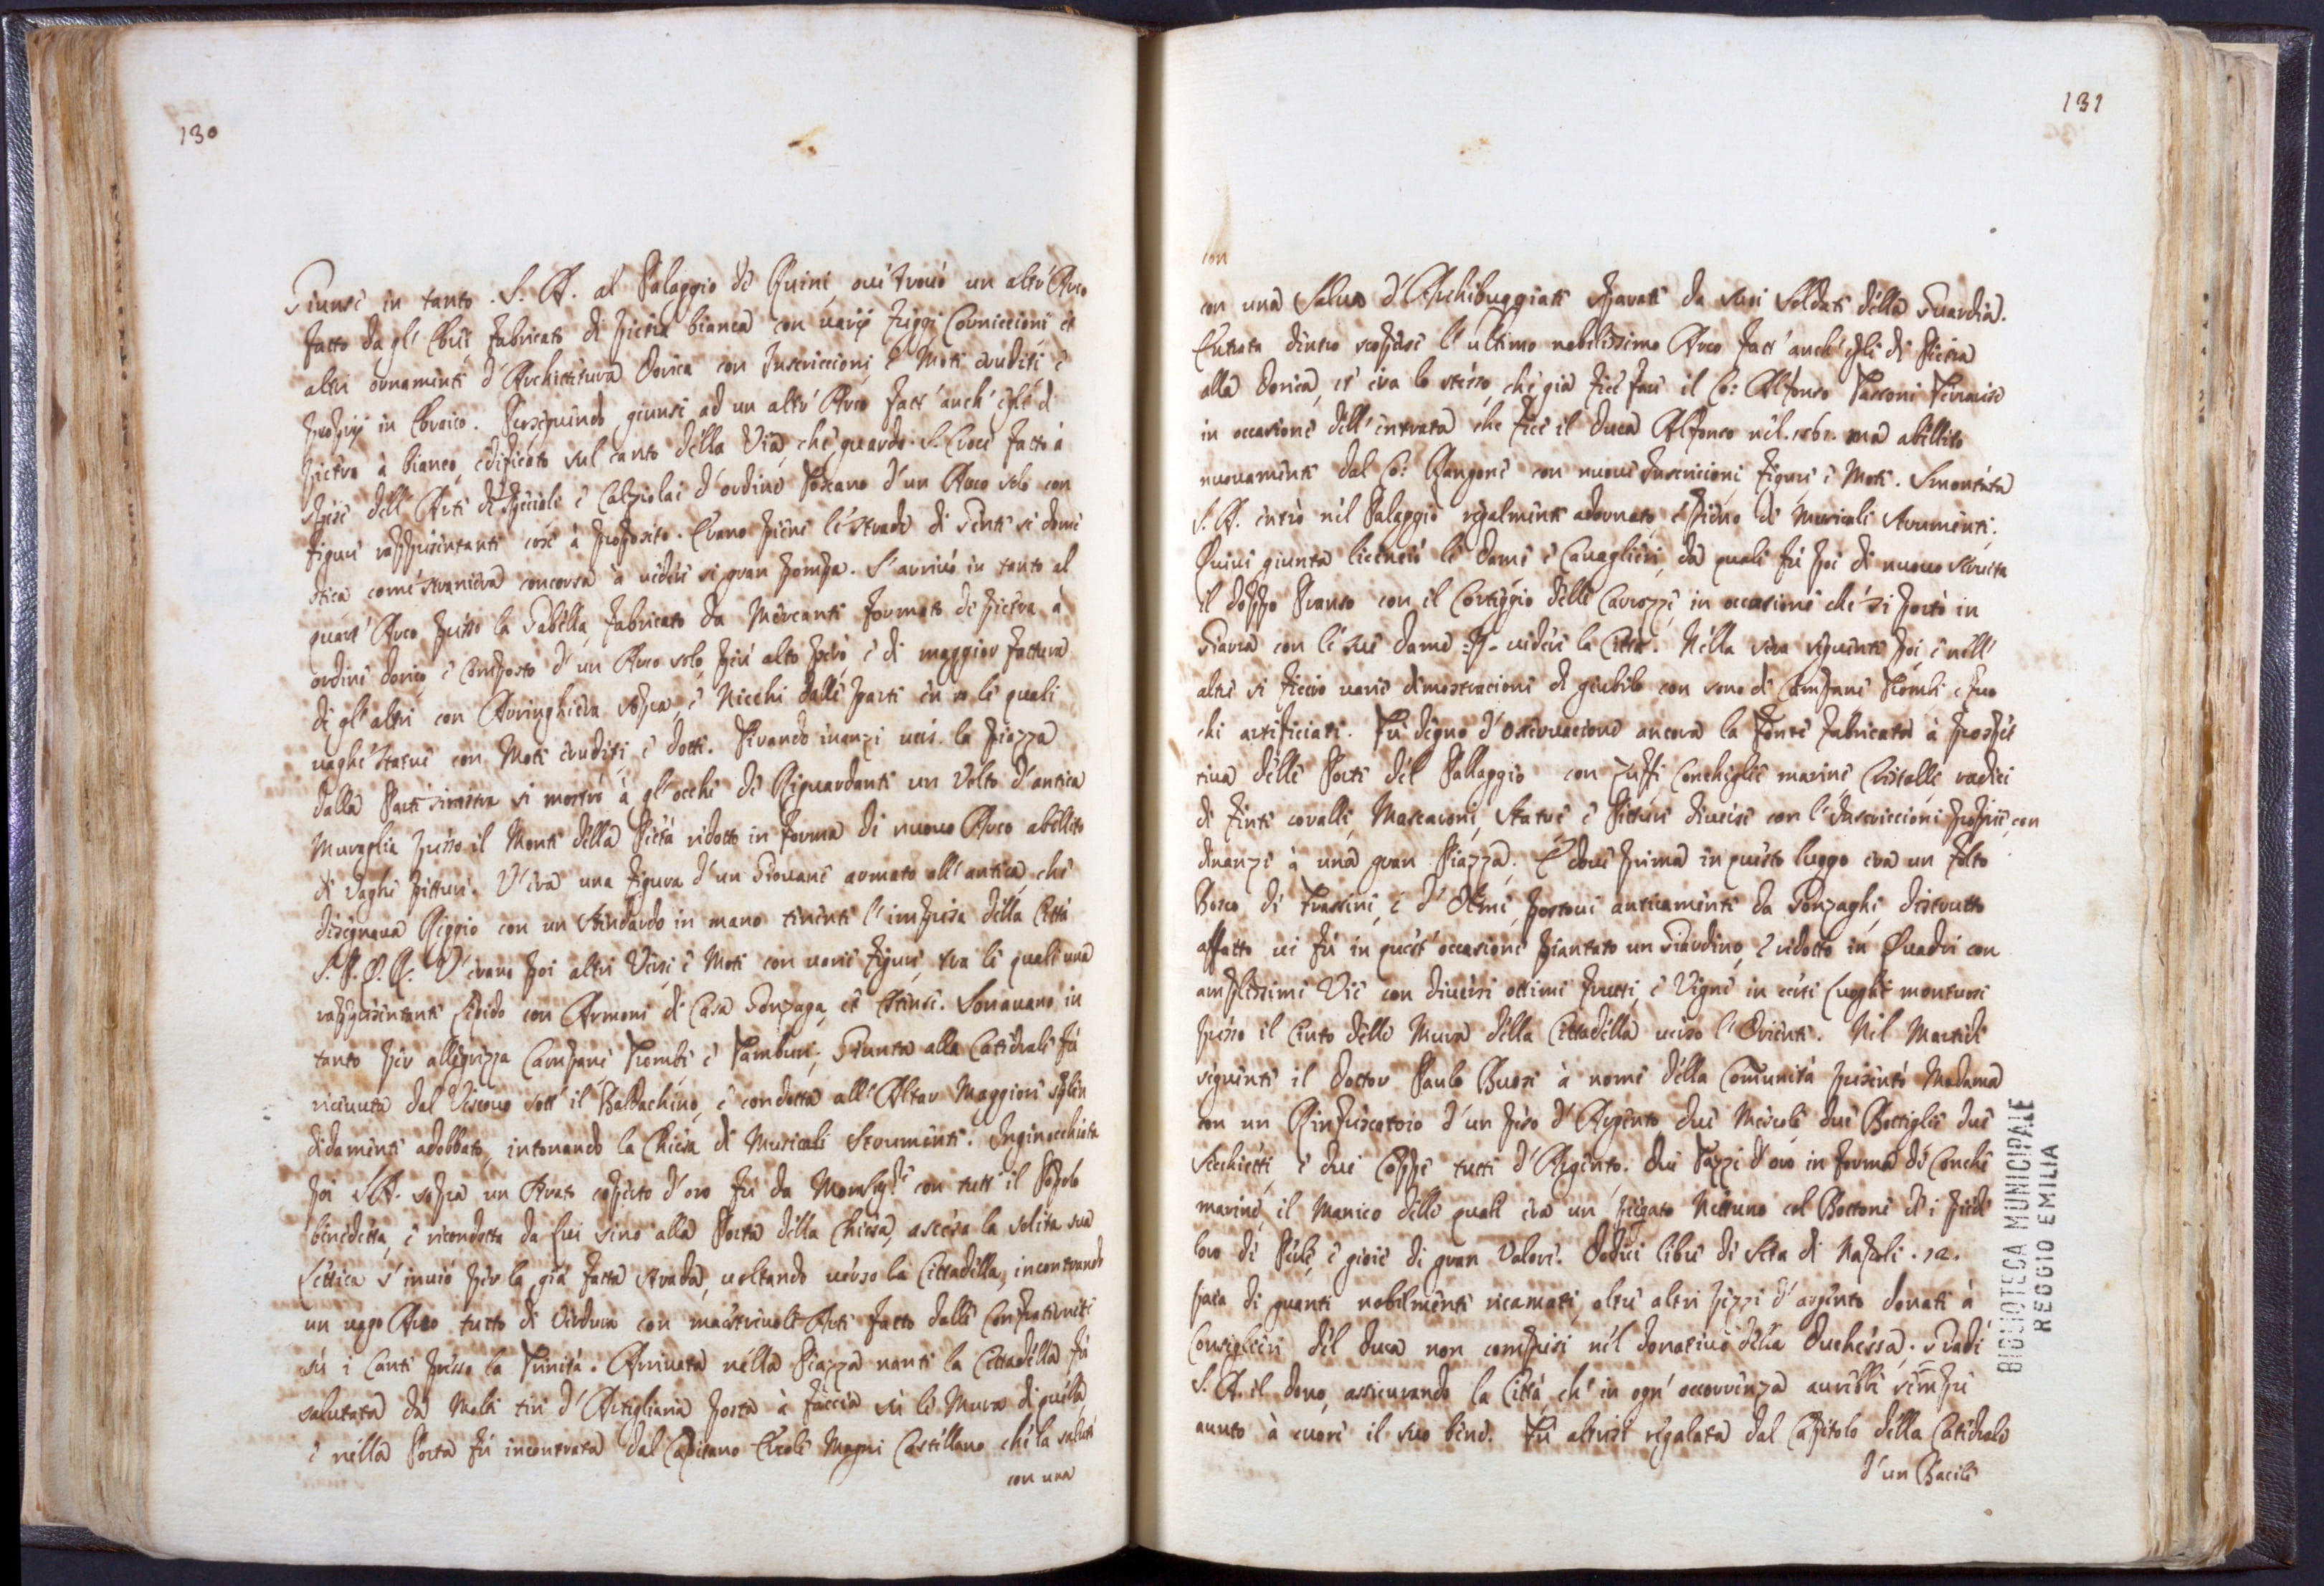 130
Giunse in tanto S. A. al Palaggio de Ruini, oue trouò un altr' Arco
fatto da gl' Ebrei fabricato di pietra bianca con varij freggi Cornuccioni et
altri ornamenti d' Architettura Dorica con Inscriccioni, e Moti eruditi, e
proprij in Ebraico. Proseguendo giunse ad un altr' Arco fatt' anch' esso di
pietra à bianco, edificato sul canto della Via, che guarda S. Croce fatto à
spese dell' Arti de Speciali e Calzolai d' ordine Toscano d' un Arco solo con
figure rappresentanti cose à proposito. Erano piene le strade di Gente si dome
stica come straniera concorsa à vedere si gran pompa. S' arriuò in tanto al
quart' Arco presso la Gabella, fabricato da Mercanti formato di pietra à
ordine dorico, e Composto d' un Arco solo, più alto però, e di maggior fattura
di gl' altri con Arringhiera sopra, e Nicchi dalle parti en le quali
vaghe statue con Moti eruditi, e dotti. Tirando inanzi verso la piazza
dalla Parte sinistra si mostrò à gl' occhi de Riguardanti un Volto d' antica
Muraglia presso il Monte della Pietà ridotto in forma di nuouo Arco abellito
di vaghe pitture. V' era una figura d' un Giouane armato all' antica, che
disegnaua Reggio con un Stendardo in mano tenente l' impresa della Città
S. P. Q. R. V' erano poi altri Versi, e Moti con varie figure, tra le quali una
rappresentante Lepido con Armoni di Casa Gonzaga, et Estense. Sonauano in
tanto per allegrezza Campane Trombe e Tamburi; Giunta alla Catedrale fù
riceuuta dal Vescouo sott' il Baldachino, e condotta all' Altar Maggiore splen
didamente adobbato, intonando la Chiesa di Musicali Stromenti. Inginocchiata
poi S.A. sopra un Strato coperto d' oro fù da Monsig.re con tutt' il Popolo
benedetta, e ricondotta da lui sino alla Porta della Chiesa, ascesa la solita sua
Lettica s' inuiò per la già fatta strada, voltando verso la Cittadella, incontrando
un vago Arco tutto di Verdura con maestreuole Arte fatto dalle Confraternite
sù i Canti presso la Trinità. Arriuata nella Piazza nanti la Cittadella fù
salutata da Molti tiri d' Artigliaria posta à faccia sù le Mura di quella,
e nella Porta fù incontrata dal Capitano Ercole Magni Castellano che la salutò
con una
131
con
con una Salua d' Archibuggiate sparati da suoi Soldati della Guardia.
Entrata dentro scoperse l' ultimo nobilissimo Arco fatt' anch' egli di Pietra
alla Dorica, et era lo stesso, che già fece fare il Co: Alfonso Tassoni Ferrarese
in occasione dell' entrata che fece il Duca Alfonso nel. 1561. ma abellito
nuouamente dal Co: Rangone con nuoue Inscricioni figure, e Moti. Smontata
S. A. entrò nel Palaggio regalmente adornato, e pieno de Musicali Strumenti.
Quiui giunta licentiò le Dame e Cauaglieri, da quali fù poi di nuouo seruita
il doppo Pranso con il Corteggio delle Carrozze in occasione che si portò in
Giarra con le sue Dame per vedere la Città. Nella sera seguente poi, e nell'
altre si fecero varie dimostracioni di giubilo con sono di Campane Trombe e fuo
chi artificiati. Fù degno d' Osseruacione ancora la Fonte fabricata à prospet
tiua delle Porte del Pallaggio con Tuffi Conchiglie marine Cristalli radici
di Finti coralli, Mascaroni, Statue e Pitture diuerse con l' Inscriccioni proprie, con
dinanzi à una gran Piazza. E doue prima in questo luogo era un folto
Bosco di Frassini, e d' Olmi, postoui anticamente da Gonzaghi, distrutto
affatto ui fù in quest' occasione piantato un Giardino, e ridotto in Quadri con
amplissime Vie con diuersi ottimi frutti, e Vigne in certi luoghi montuosi
presso il Cinto delle Mura della Cittadella verso l' Oriente. Nel Martedi
seguente il Dottor Paulo Buosi à nome della Comunità presentò Madama
con un Rinfrescatoio d' un peso d' Argento, due Mescole due Bottiglie due
Secchietti, e due Coppe tutti d' Argento. Due Tazze d' oro in forma di Conche
marine, il Manico delle quali era un piegato Nettuno col Bottone de i piedi
loro di Perle, e gioie di gran Valore. Dodici libre di Seta di Napoli. 12.
para di guanti nobilmente ricamati, oltre altri pezzi d' argento donati à
Consiglieri del Duca non compresi nel donatiuo della Duchessa. Gradì
S. A. il dono, assicurando la Città, ch' in ogn' occorrenza aurebbe sempre
aunto à cuore il suo bene. Fù altresi regalata dal Capitolo della Catedrale
d' un Bacile
BIBLIOTECA MUNICIPALE
REGGIO EMILIA